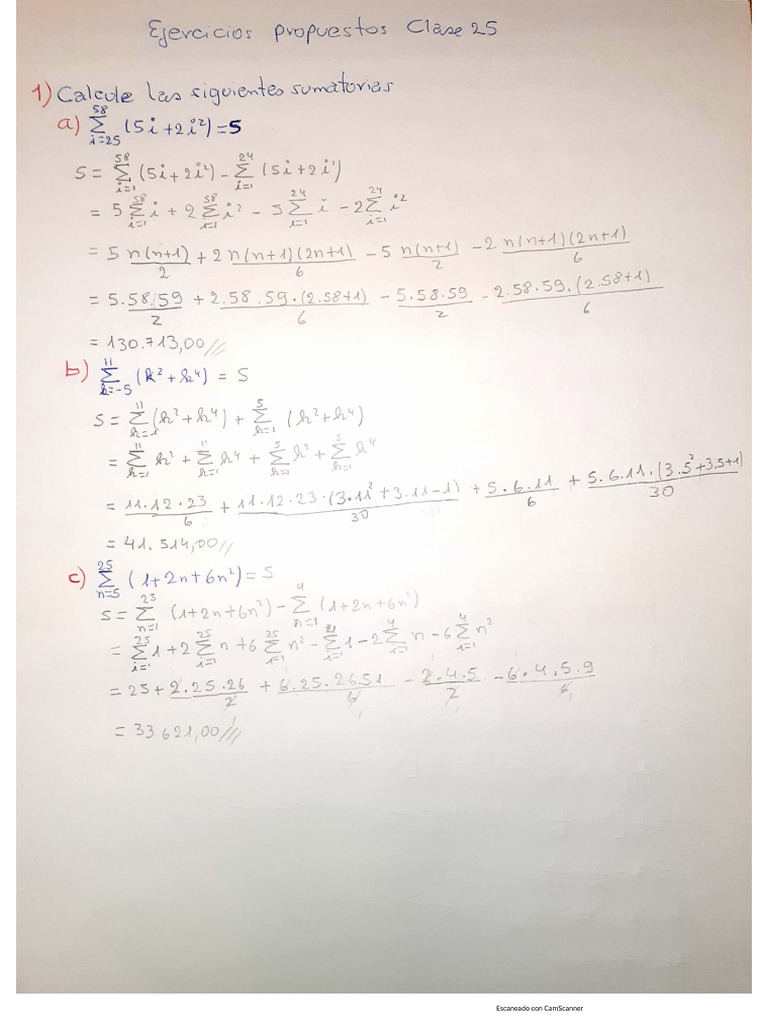 Ejercicios propuestos Clase 25
1) Calcule las siguientes sumatorias
a) 58 ∑ i=25 (5i+2i²)=S
S = 58 ∑ i=1 (5i+2i²) - 24 ∑ i=1 (5i+2i²)
= 5 58 ∑ i=1 i + 2 58 ∑ i=1 i² - 5 24 ∑ i=1 i - 2 24 ∑ i=1 i²
= 5 n(n+1)/2 + 2 n(n+1)(2n+1)/6 - 5 n(n+1)/2 - 2 n(n+1)(2n+1)/6
= 5.58.59/2 + 2.58.59.(2.58+1)/6 - 5.58.59/2 - 2.58.59.(2.58+1)/6
= 130.713,00//
b) 11 ∑ k=-5 (k²+k⁴) = S
S = 11 ∑ k=1 (k²+k⁴) + 5 ∑ k=1 (k²+k⁴)
= 11 ∑ k=1 k² + 11 ∑ k=1 k⁴ + 5 ∑ k=1 k² + 5 ∑ k=1 k⁴
= 11.12.23/6 + 11.12.23.(3.11²+3.11-1)/30 + 5.6.11/6 + 5.6.11.(3.5²+3.5+1)/30
= 41.514,00//
c) 25 ∑ n=5 (1+2n+6n²)=S
S = 25 ∑ n=1 (1+2n+6n²) - 4 ∑ n=1 (1+2n+6n²)
= 25 ∑ i=1 1 + 2 25 ∑ i=1 n + 6 25 ∑ i=1 n² - ∑ i=1 1 - 2 4 ∑ i=1 n - 6 4 ∑ i=1 n²
= 25 + 2.25.26/2 + 6.25.26.51/6 - 2.4.5/2 - 6.4.5.9/6
= 33 621,00///
Escaneado con CamScanner